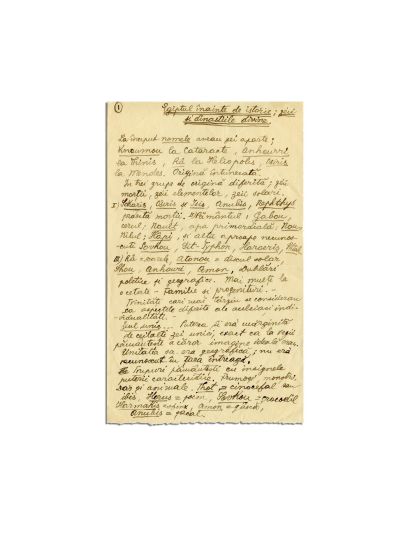 1
Egiptul înainte de istorie; zeii
și dinastiile divine.
La început nomele aveau zei aparte;
Knoumou la Cataracte, Anhouri
la Thinis, Râ la Heliopolis, Osiris
la Mendes. Origină
În trei grupe de origină diferită; zeii
morții, zeii elementelor, zeii solari.
I) Sokaris, Osiris și Isis, Anubis, Nephthys
morții. Pământul; Gabou,
cerul, Nouit, apa primordială; Nou
Nilul; Hapi, și alte aproape necunos-
cute Sovkou Sit-Typhon, Haroeris,
III) Râ = soarele, Atonou = discul solar,
Shou, Anhouri, Amon. Dublări
politice și geografice. Mai multe la
o cetate. Familie și progenitură. -
Trinitate cari mai târziu se considerau
ca aspectele diferite ale aceleiași indi-
vidualități.
Zeul unic... Puterea îi era mărginită
de ceilalți zei unici; exact ca la regii
pământești a căror imagine ideală erau.
Unitatea sa era geografică; nu era
recunoscut în țara întreagă.
Ale trupuri pământești cu insignele
puterii caracteristice. Pumosi monoli
sau și animale. Thot = cinocefal sau
ibis, Horus = șoim, Sovkou = crocodil
Harmakis = sfinx, Amon = gâscă,
Anubis = șacal.